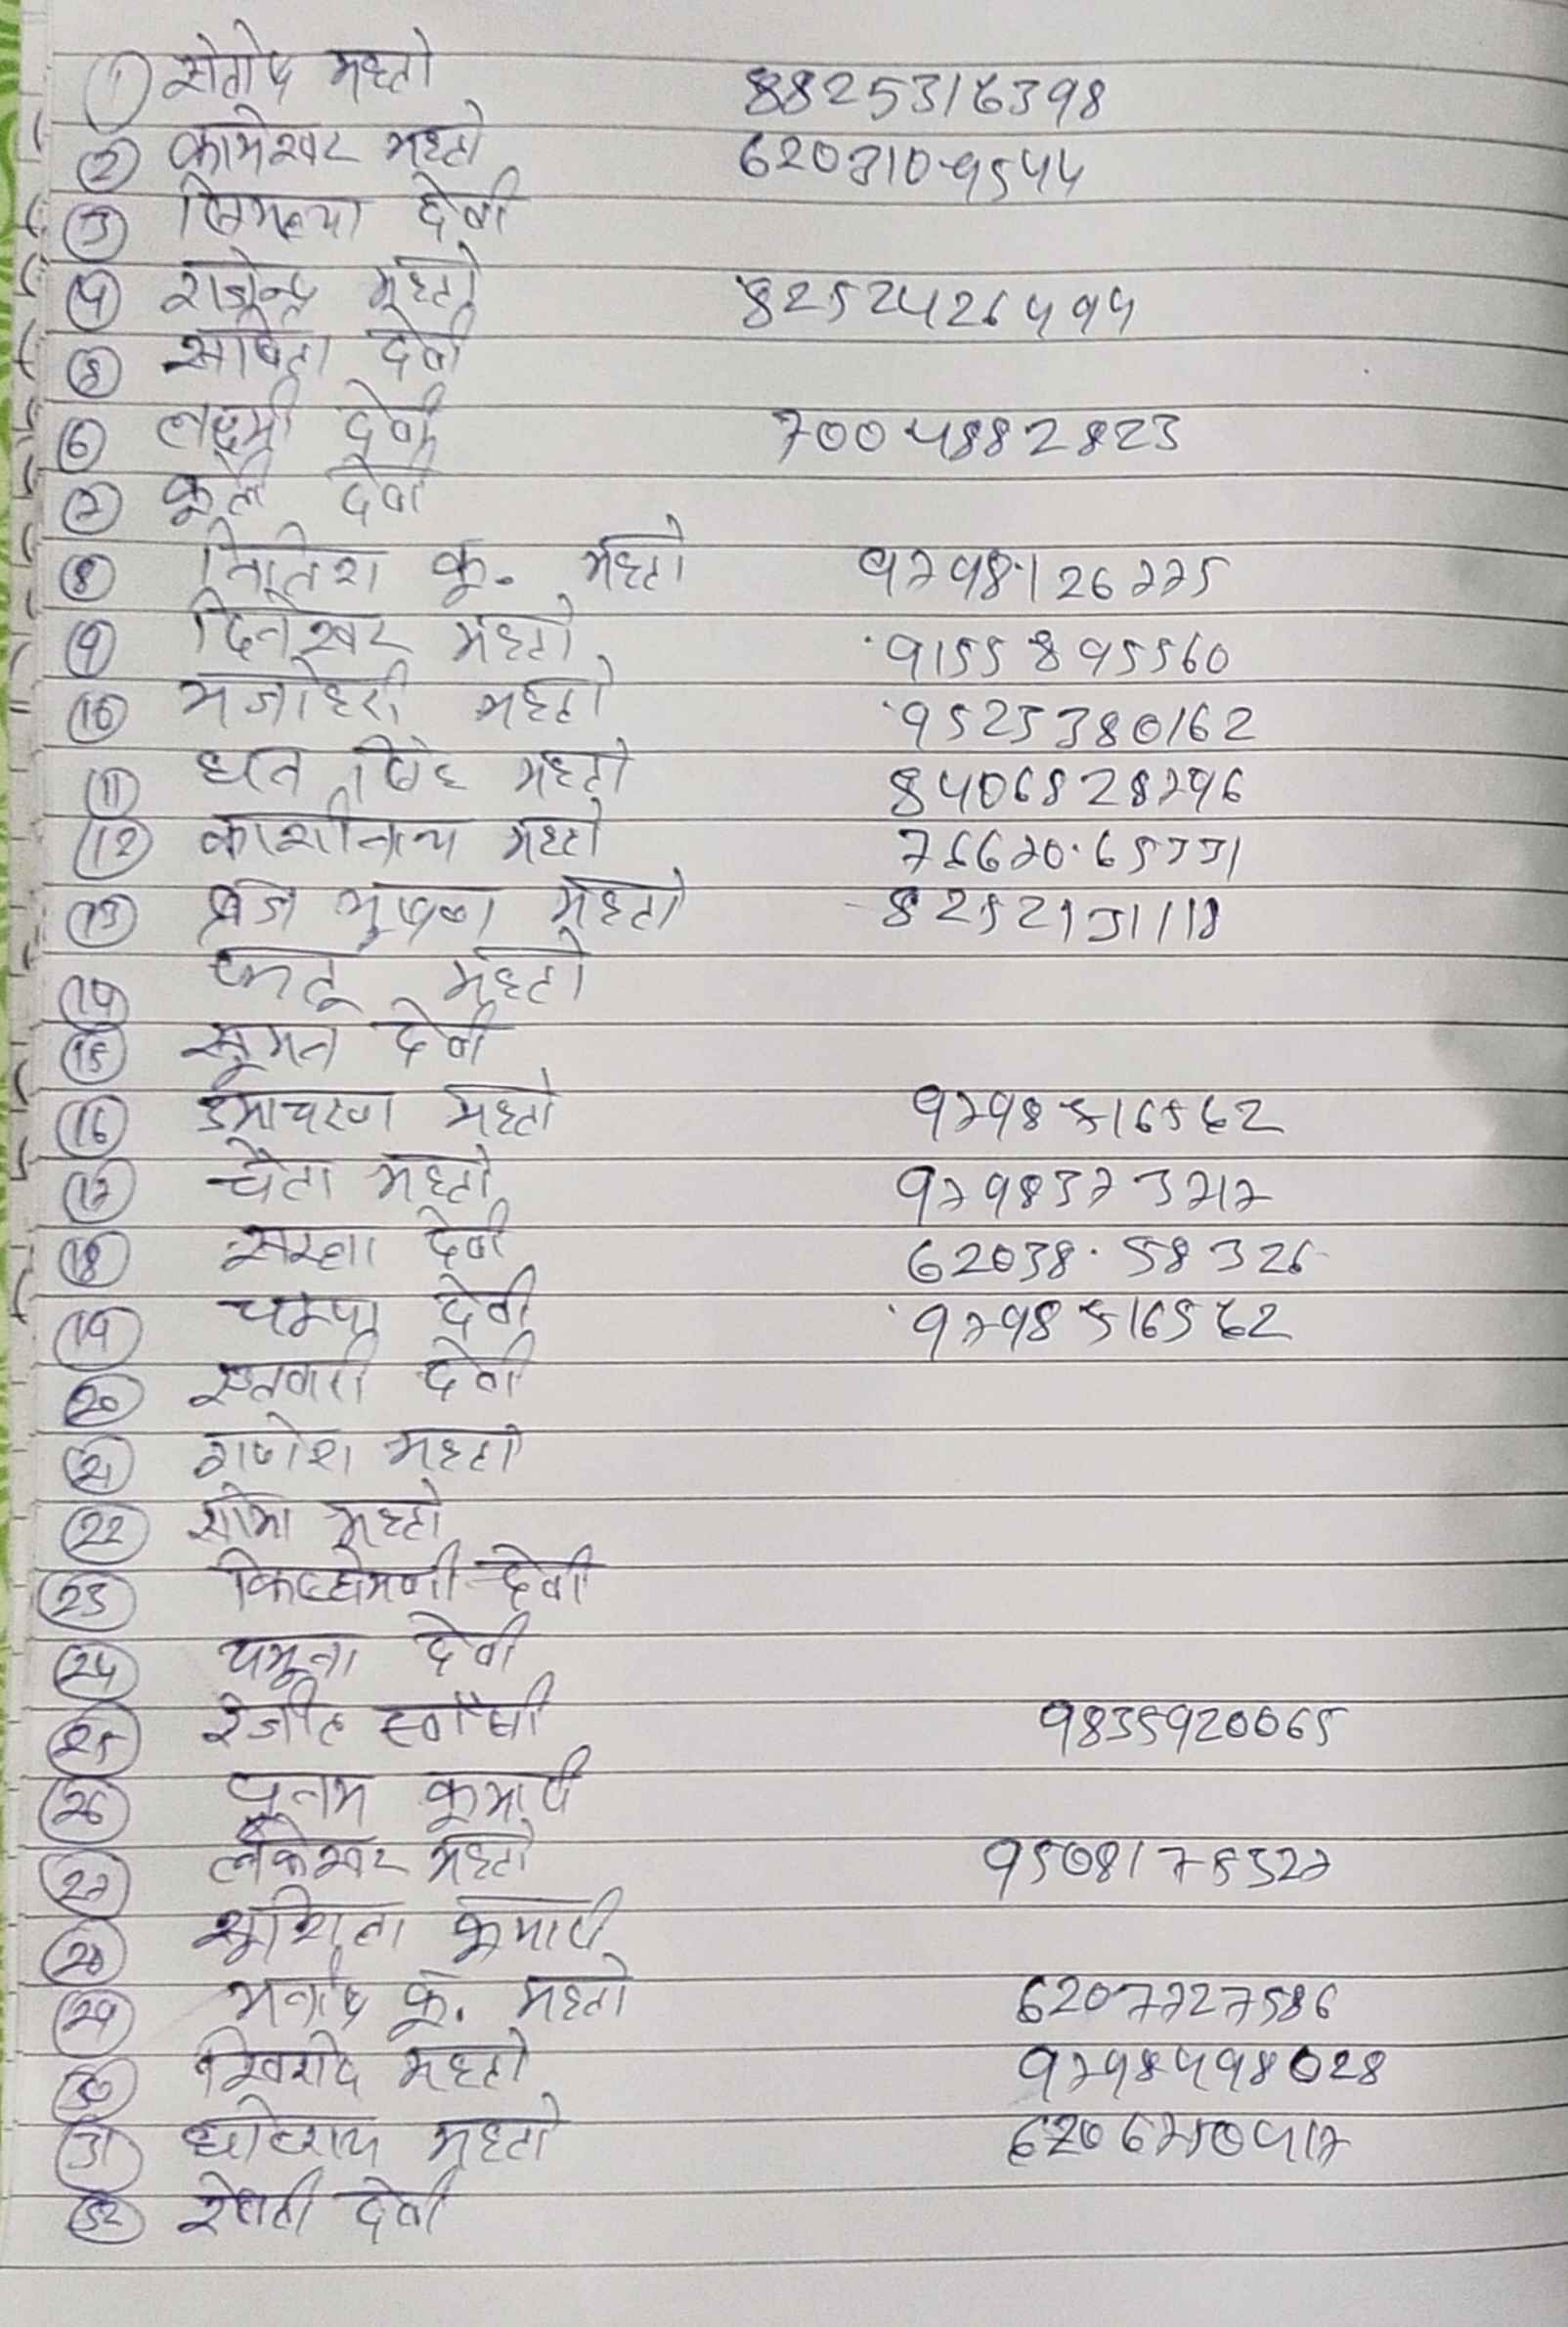 1 संतोष महतो 8825316398
2 कामेश्वर महतो 6203109544
3 विमला देवी
4 राजेन्द्र महतो 8252426494
5 सविता देवी
6 लक्ष्मी देवी 7004882823
7 फूल देवी
8 नितेश कु. महतो 9798126775
9 दिनेश्वर महतो 9155895560
10 मनोहरी महतो 9525380162
11 धन सिंह महतो 8406828796
12 काशीनाथ महतो
13 ब्रज भूषण महतो 8252131118
14 महतो
15 सुमन देवी
16 उमाचरण महतो 9798516562
17 चैता महतो 9798373717
18 देवी 62038 58326
19 चम्पा देवी 9798516562
20 देवी
21 गणेश महतो
22 सोमा महतो
23 देवी
24 यमुना देवी
25 रंजीत 9835920065
26 पुनम कुमारी
27 लंकेश्वर महतो 9508178327
28 सुशिला कुमारी
29 मनोज कु. महतो 6207727586
30 महतो 9798498028
31 महतो
32 रेवती देवी